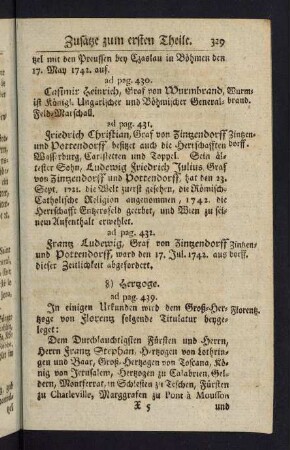 Zusätze zum ersten Theile. 329
tzel mit den Preussen bey Czaslau in Böhmen den
17. May 1742. auf.
ad pag. 430.
Casimir Heinrich, Graf von Wurmbrand, Wurm-
ist Königl. Ungarischer und Böhmischer General- brand.
Feld-Marschall.
ad pag. 431.
Friedrich Christian, Graf von Zintzendorff Zintzen-
und Pottendorff besitzt auch die Herrschafften dorff.
Wasserburg, Carlstetten und Toppel. Sein äl-
tester Sohn, Ludewig Friedrich Julius, Graf
von Zintzendorff und Pottendorff, hat den 23.
Sept. 1721. die Welt zuerst gesehen, die Römisch-
Catholische Religion angenommen, 1742. die
Herrschafft Entzersfeld geerbet, und Wien zu sei-
nem Aufenthalt erwehlet.
ad pag. 432.
Frantz Ludewig, Graf von Zintzendorff Zintzen-
und Pottendorff, ward den 17. Jul. 1742. aus dorff.
dieser Zeitlichkeit abgefordert.
8) Hertzoge.
ad pag. 439.
In einigen Urkunden wird dem Groß-Her- Florentz.
tzoge von Florentz folgende Titulatur beyge-
leget:
Dem Durchlauchtigsten Fürsten und Herrn,
Herrn Frantz Stephan, Hertzogen von Lothrin-
gen und Baar, Groß-Hertzogen von Toscana, Kö-
nig von Jerusalem, Hertzogen zu Calabrien, Gel-
dern, Montferrat, in Schlesien zu Teschen, Fürsten
zu Charleville, Marggrafen zu Pont à Mousson
X 5 und